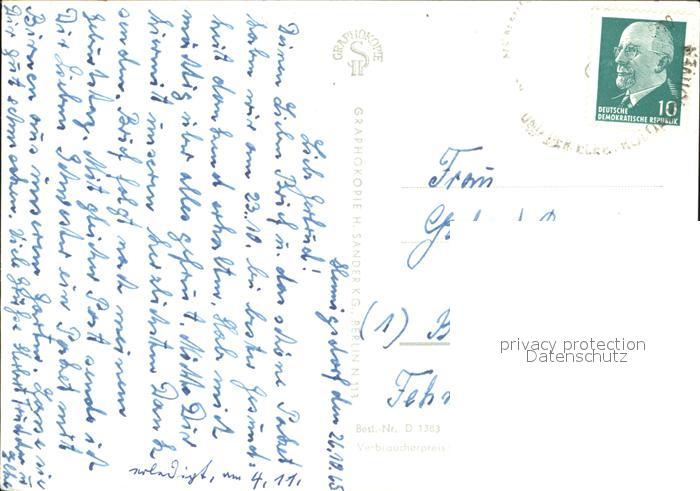 Hennigsdorf den 26.10.65
Liebe Gertrud!
Deinen lieben Brief u. das schöne Paket
haben wir am 23.10. bei bester Gesund-
heit dankend erhalten. Hab mich
mächtig über alles gefreut. Möchte Dir
hiermit unseren herzlichsten Dank
senden. Brief folgt nach meinem
Geburtstag. Mit gleicher Post sende ich
Dir liebes Schwester ein Paket mit
Birnen aus unserem Garten. Lasse sie
Dir gut schmecken. Viele Grüße
erledigt, am 4.11.
GRAPHOKOPIE
GRAPHOKOPIE H. SANDER K.G., BERLIN N 113
DEUTSCHE
DEMOKRATISCHE REPUBLIK
10
Frau
(1) B
Fehr
privacy protection
Datenschutz
Best.-Nr. D 1383
Verbraucherpreis